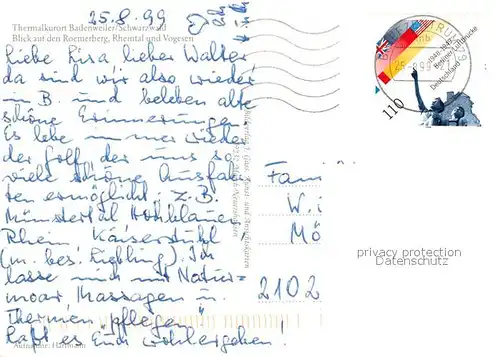 25.8.99
Thermalkurort Badenweiler/Schwarzwald
Blick auf den Roemerberg, Rheintal und Vogesen
Liebe Lisa lieber Walter
da sind wir also wieder
in B. und beleben alte
schöne Erinnerungen
Es lebe immer wieder
der Golf der uns so
viele schöne Ausfahr-
ten ermöglicht. z.B.
Münstertal Hochblauen
Rhein Kaiserstuhl
(m. bes. Liebling). Ich
lasse mich mit Natur-
moor Massagen u.
Thermen „pflegen"
Laßt es Euch wohlergehen!
Aufnahme: Hartmann
Fami
W. i
Mö
2102
110
50 Jahre
Berliner Luftbrücke
Deutschland
25.-8.99
privacy protection
Datenschutz